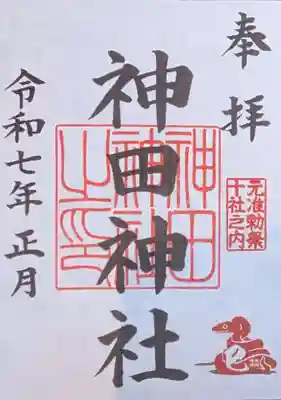 奉拝
元准勅祭
十社之内
神田神社
神田神社之印
令和七年正月